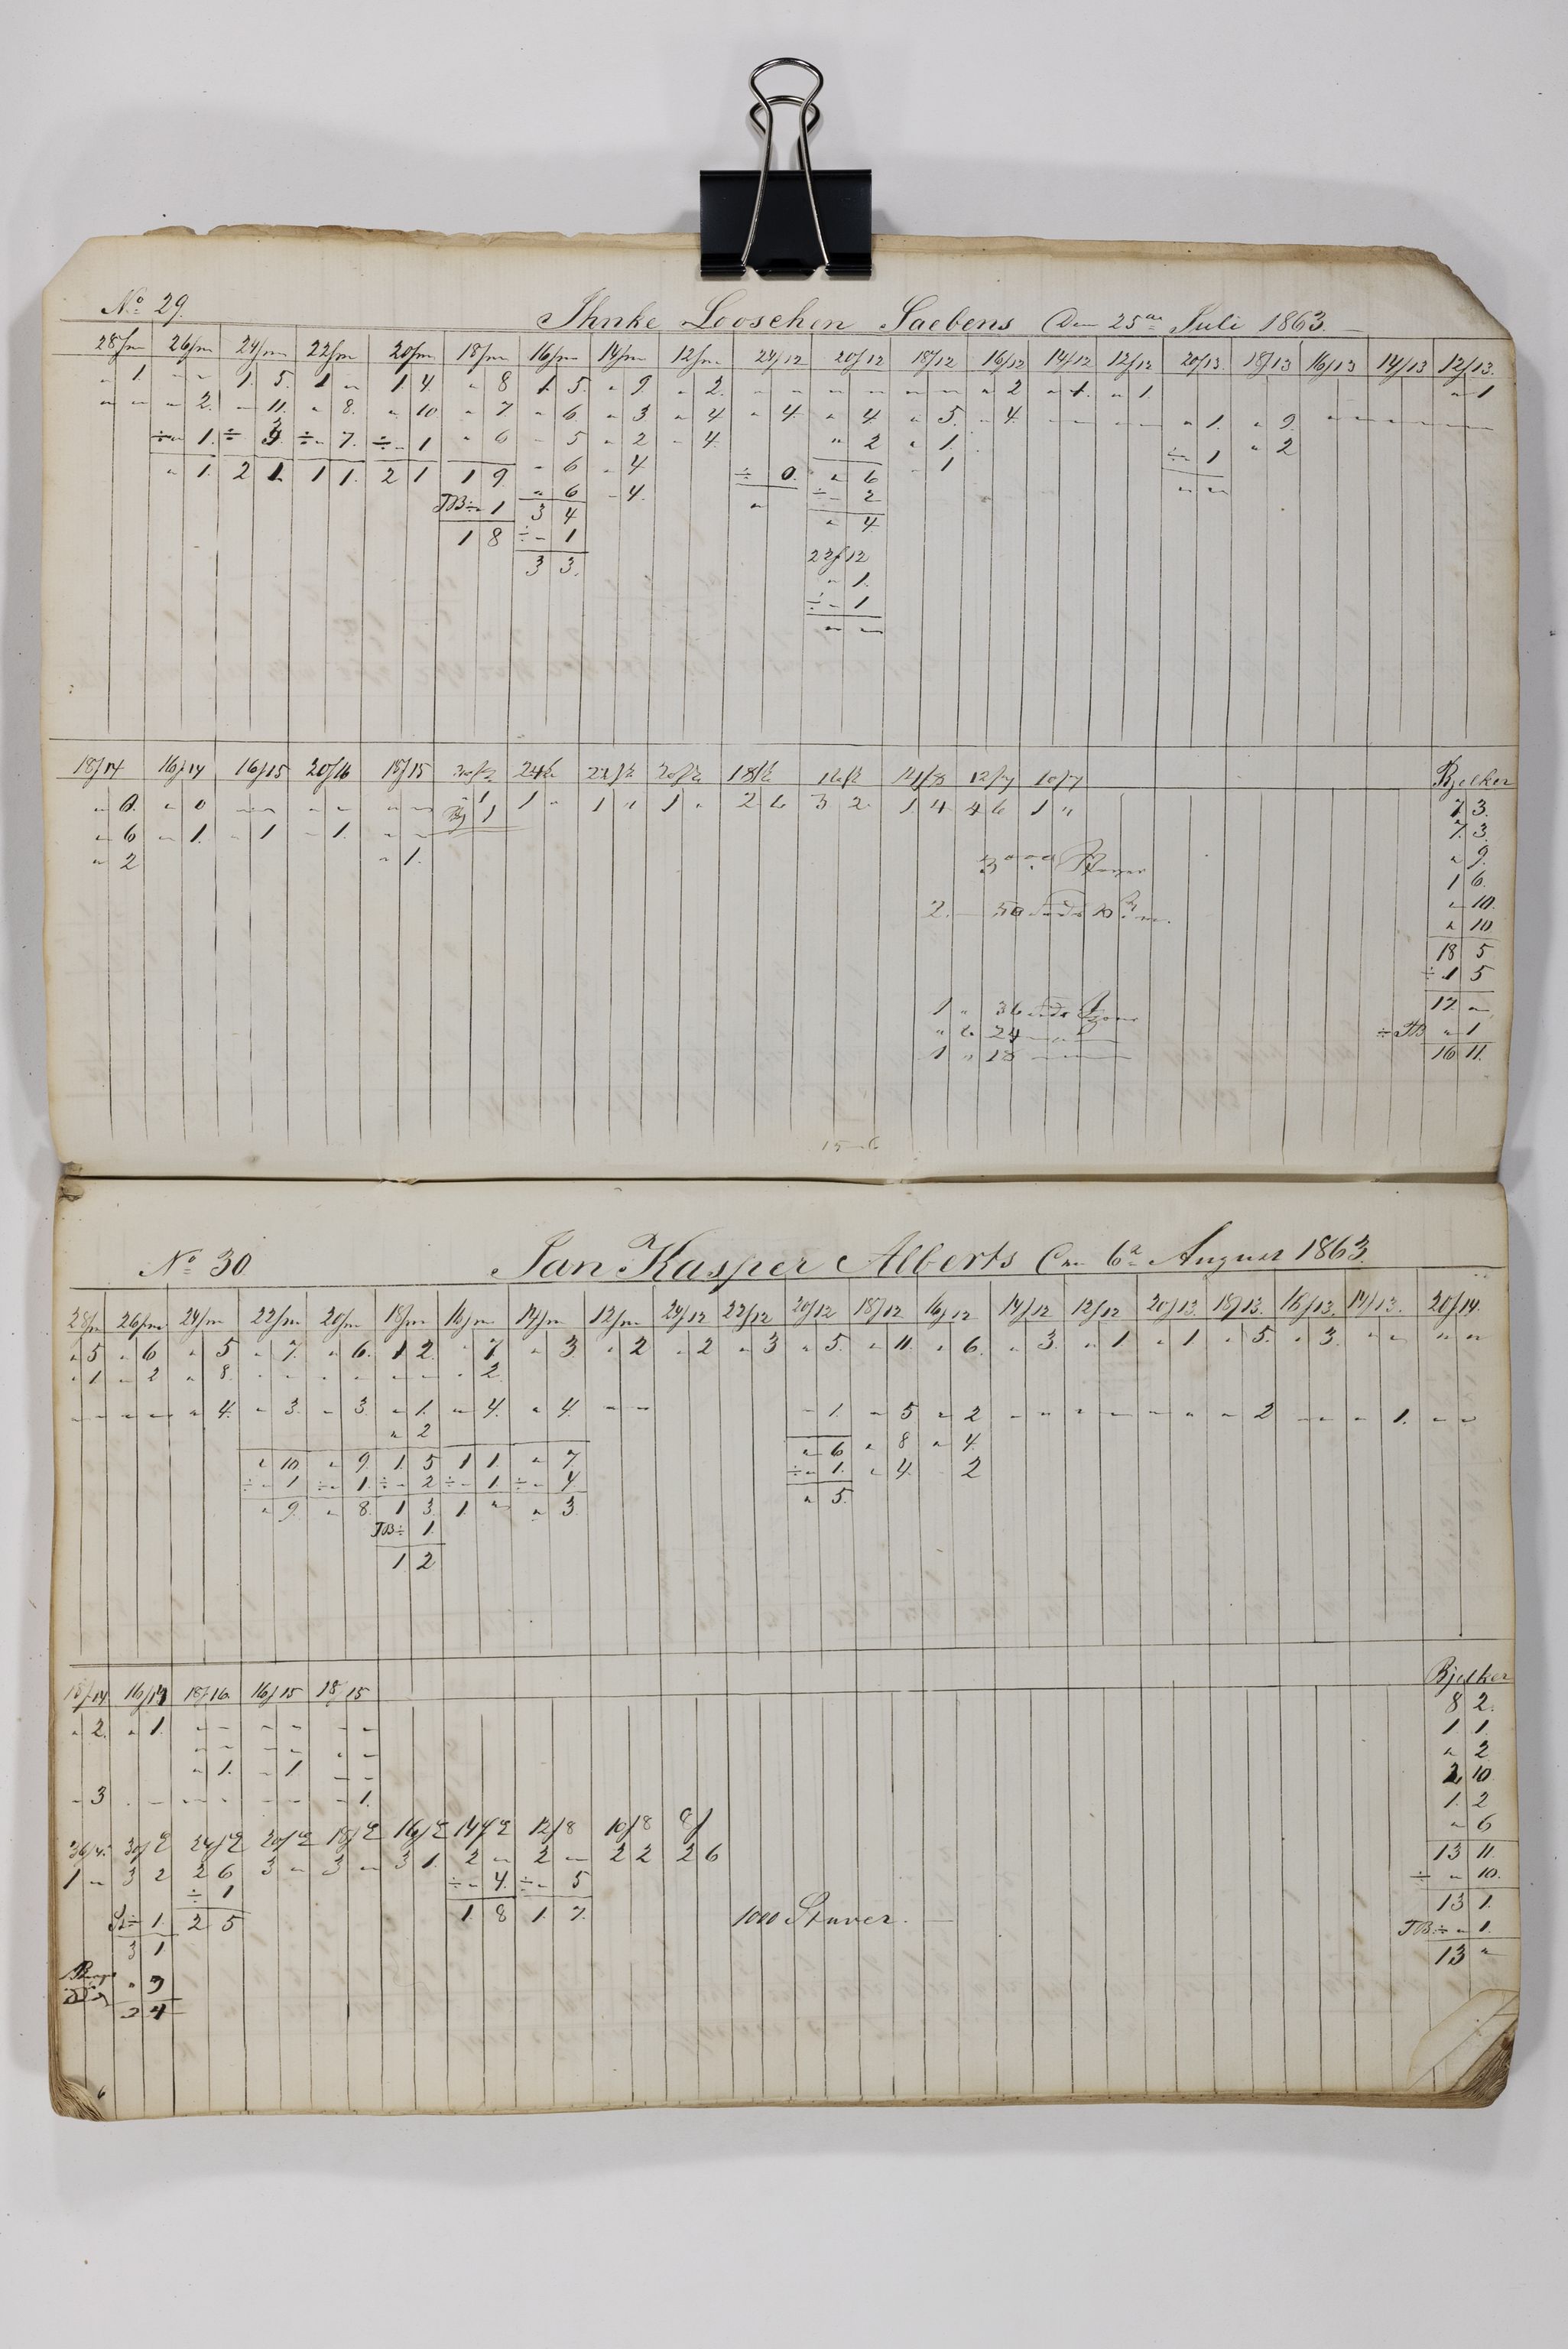 No 29. Ihnke Looschen Saebens Den 25de Juli 1863.
28/m 26/m 24/m 22/m 20/m 18/m 16/m 14/m 12/m 24/12 20/12 18/12 16/12 14/12 12/12 20/13 18/13 16/13 14/13 12/13.
" 1. " " 1. 5. 1 " 1. 4. " 8 1 5. " 9 " 2. " " " " " " " 2 " 1. " 1. " 1
" " " 2. " 11. " 8. " 10 " 7 " 6 " 3 " 4 " 4. " 4. " 5. " 4. " " " " " 1. " 9.
÷ " 1. ÷ ÷ " 7. ÷ " 1 " 6 " 5 " 2 " 4. " 2 " 1. ÷ 1 " 2
" 1. 2 1. 1 1. 2 1 1 9 " 6 " 4 ÷ 0. " 6 " 1 " "
TB ÷ " 1 " 6 " 4. " ÷ " 2
3 4 " 4
1 8 ÷ " 1 22/12
3 3. " 1.
÷ " 1
" "
18/14 16/14 16/15 20/16 18/15 Bjelker
" 0. " 0 " " " " " " " 1 1 " 1 " 1 " 2 6 3 2. 1. 4 4 6 1 " 7 3.
" 6 " 1. " 1 " 1. " " 1 7. 3
" 2 " 1. " 9.
1 6.
" 10.
" 10
18 5
÷ 1 5
1 " 36 17. "
" 6 24 ÷ TB " 1
1 " 18 16 11.
15-6
No 30. Jan Kasper Alberts Den 6te August 1863.
28/m 26/m 24/m 22/m 20/m 18/m 16/m 14/m 12/m 24/12 22/12 20/12 18/12 16/12 14/12 12/12 20/13 18/13. 16/13. 14/13. 20/14.
" 5 " 6 " 5 " 7. " 6. 1 2. " 7 " 3 " 2 " 2 " 3 " 5. " 11. " 6. " 3. " 1 " 1 " 5. " 3. " " " "
" 1 " 2 " 8. " " " " " " " 2
" " " " " 4. " 3. " 3. " 1. " 4. " 4. " " " 1. " 5 " 2 " " " " " " " 2 " " " 1. " "
" 2 " 6 " 8 " 4.
" 10 " 9. 1. 5 1 1. " 7 ÷ " 1. " 4. " 2
÷ " 1 ÷ " 1. ÷ " 2 ÷ " 1. ÷ " 4 " 5.
" 9. " 8. 1 3. 1. " " 3.
TB ÷ 1.
1. 2
18/14 16/14 18/16 16/15 18/15 Bjelker
" 2. " 1. " " " " " " 8 2.
" " " " " " 1. 1.
" 1. " 1 " " " 2
" 3 " " " " " " " 1. 2 10
1. 2
" 6
12/8 10/8 8/ 13 11.
1 " 3 2 2 6 3 " 3 " 3 1. 2 " 2 " 2 2 2 6 ÷ " 10.
÷ 1 ÷ " 4. ÷ " 5 13 1.
÷ 1. 2 5 1. 8 1. 7. 1000 Staver. TB ÷ " 1.
3 1 13 "
" 9
2 4